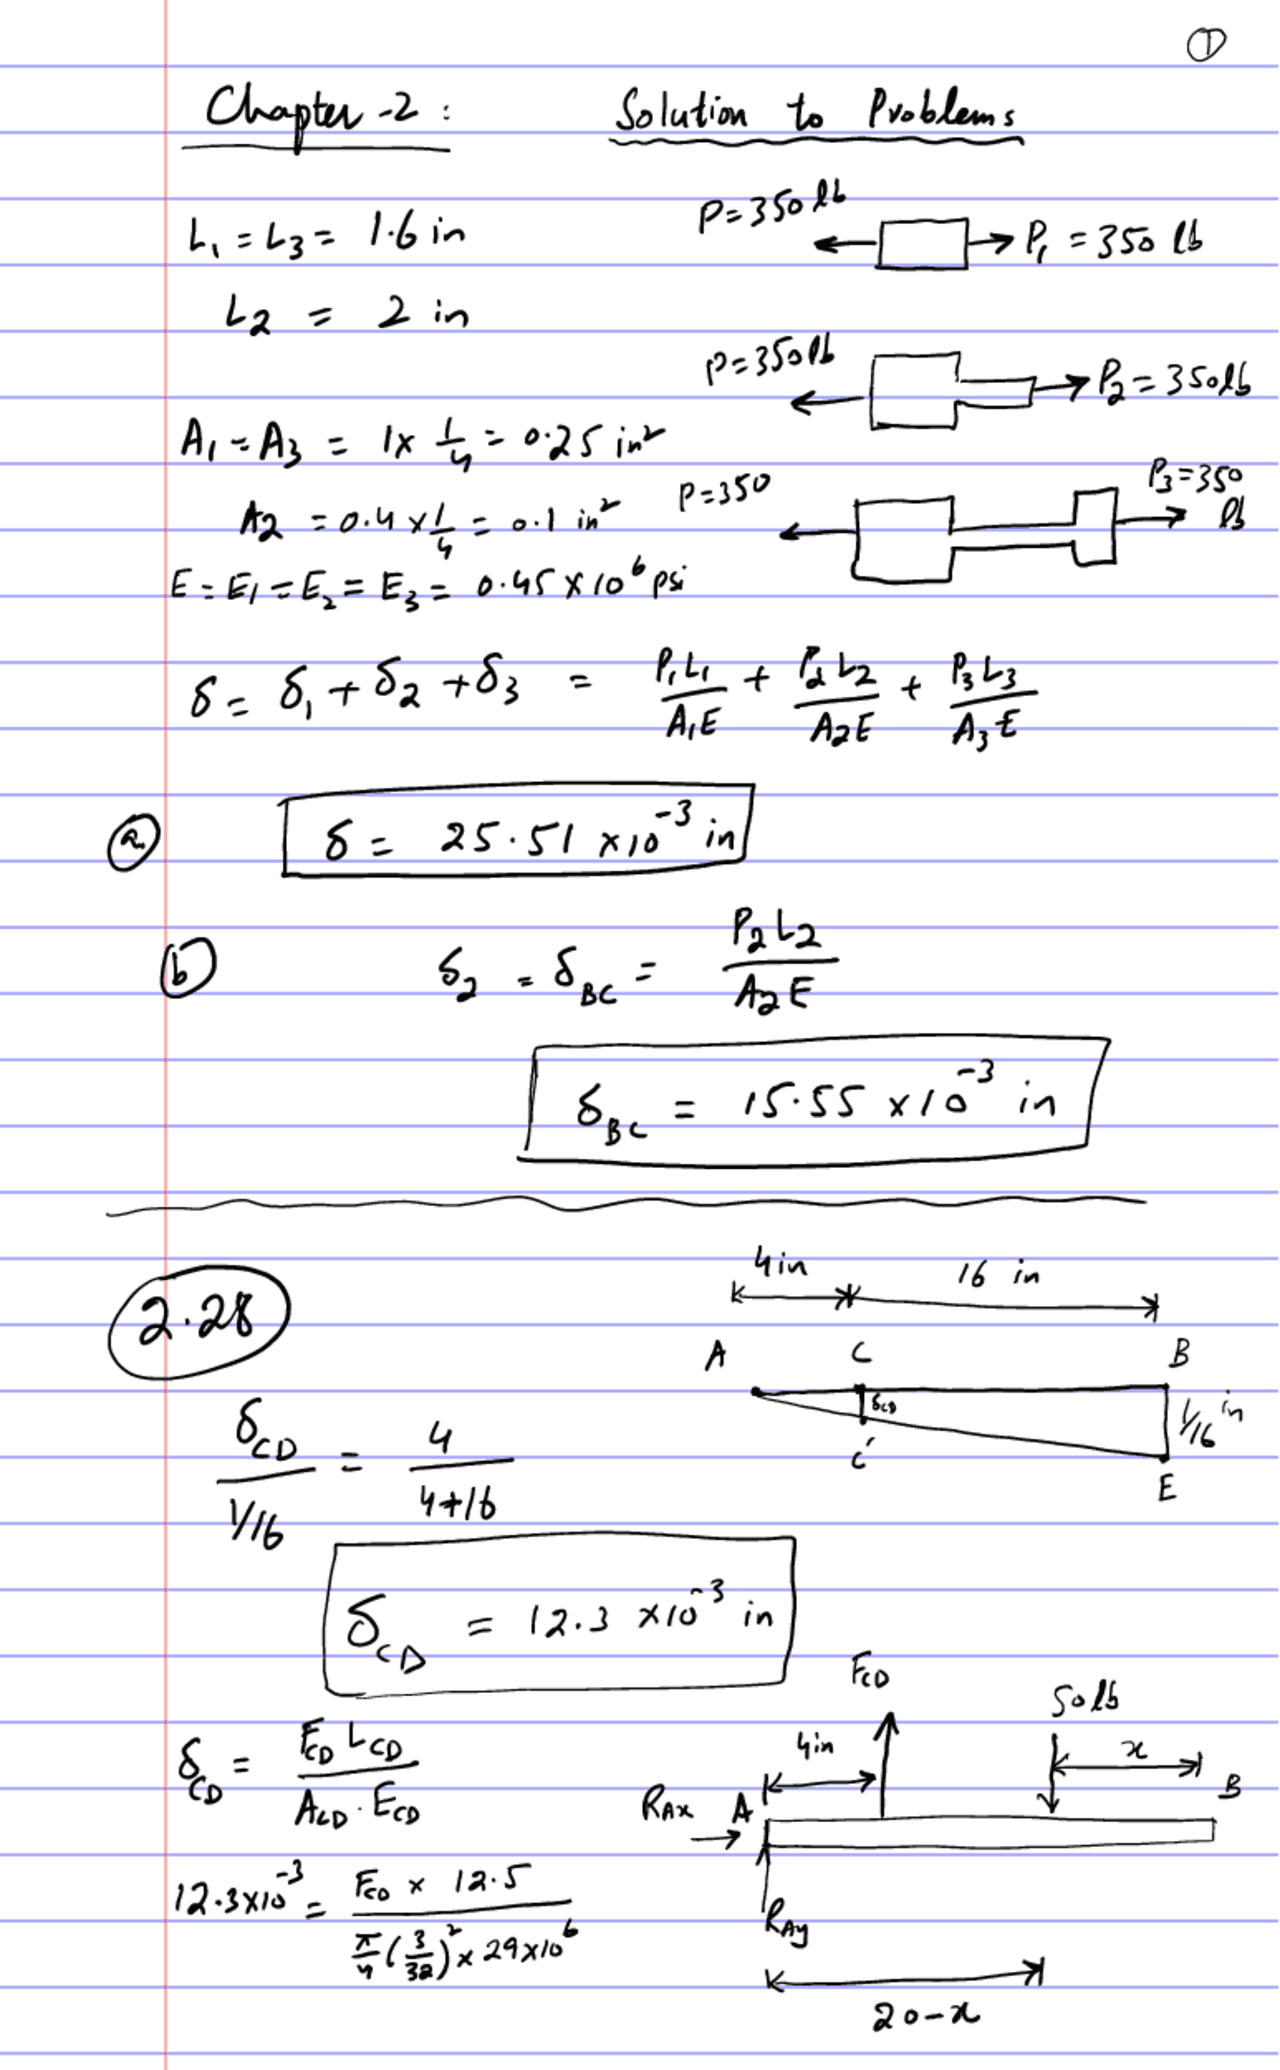 ①
Chapter-2: Solution to Problems
L₁ = L₃ = 1.6 in
P=350 lb
P₁ = 350 lb
L₂ = 2 in
P=350lb
P₂ = 350lb
A₁ = A₃ = 1 x 1/4 = 0.25 in²
P=350
P₃=350 lb
A₂ = 0.4 x 1/4 = 0.1 in²
E = E₁ = E₂ = E₃ = 0.45 x 10⁶ psi
δ = δ₁ + δ₂ + δ₃ = P₁L₁/A₁E + P₂L₂/A₂E + P₃L₃/A₃E
ⓐ δ = 25.51 x 10⁻³ in
ⓑ δ₂ = δ_BC = P₂L₂/A₂E
δ_BC = 15.55 x 10⁻³ in
2.28
4in 16 in
A C B
δ_CD
1/16 in
C'
E
δ_CD / 1/16 = 4 / 4+16
δ_CD = 12.3 x 10⁻³ in
F_CD
50 lb
4in
x
R_Ax A B
δ_CD = F_CD L_CD / A_CD . E_CD
12.3x10⁻³ = F_CD x 12.5 / π/4 (3/32)² x 29x10⁶
R_Ay
20-x